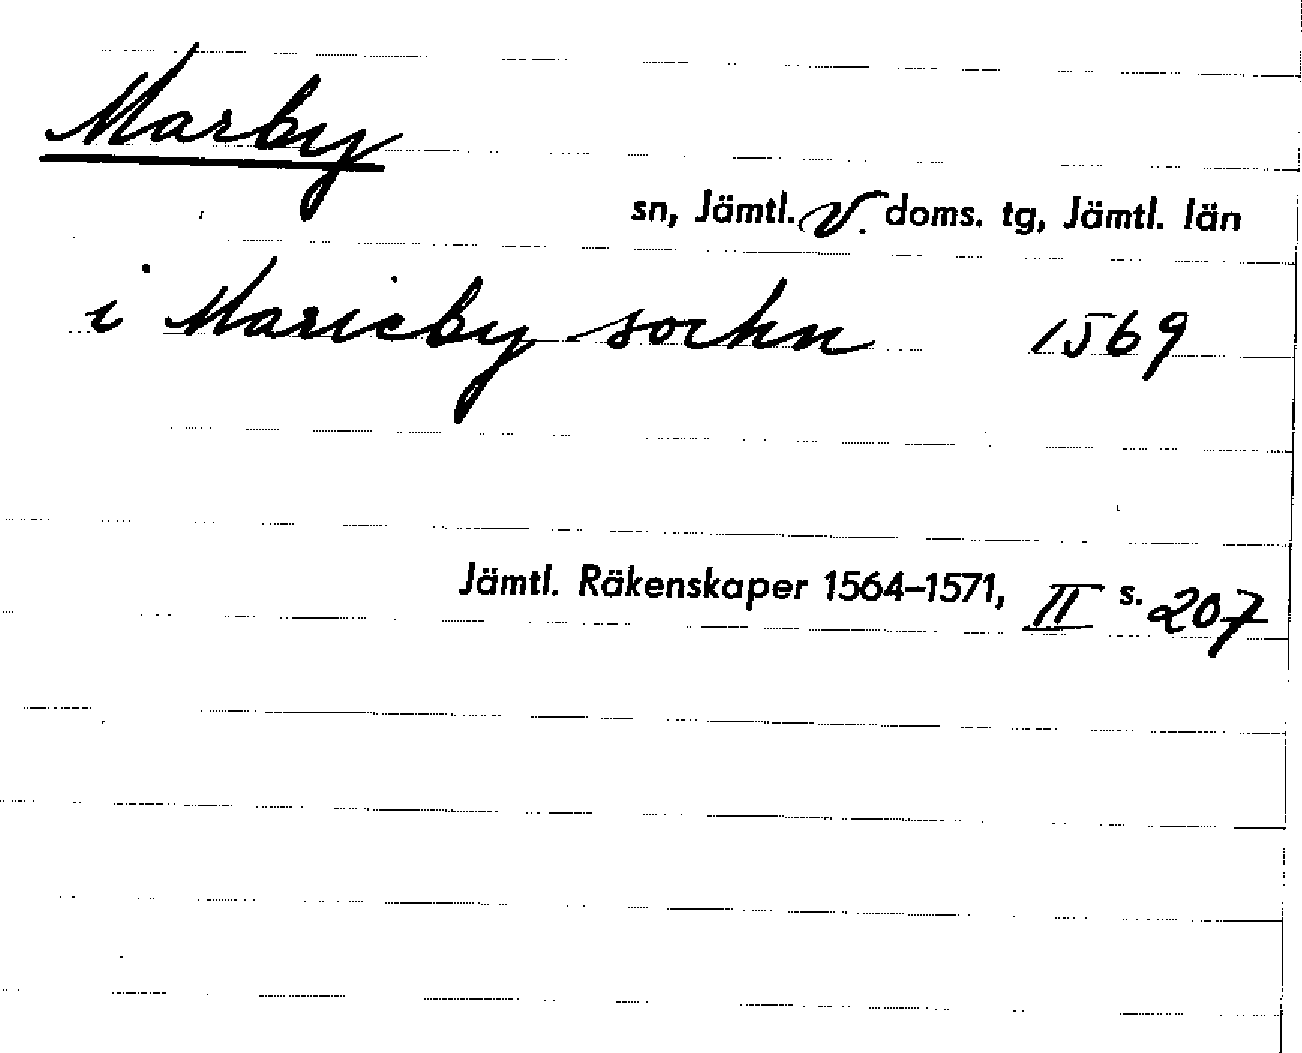 Marby
sn, Jämtl. v. doms. tg, Jämtl. län
i Marieby sochn 1569
Jämtl. Räkenskaper 1564–1571, II s. 207